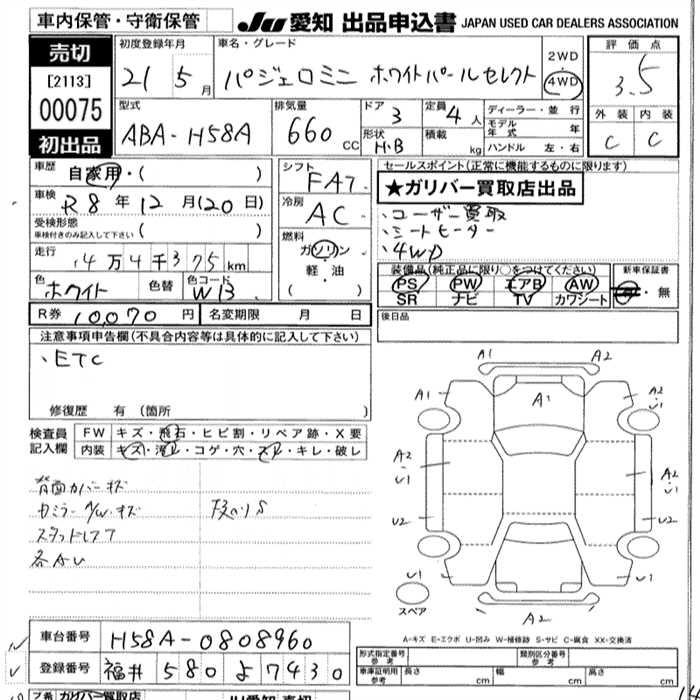 車内保管・守衛保管
JU 愛知 出品申込書 JAPAN USED CAR DEALERS ASSOCIATION
売切
[2113]
00075
初出品
初度登録年月
21 5 月
車名・グレード
パジェロミニ ホワイトパールセレクト
2WD
4WD
評価点
3.5
外装 内装
C C
型式
ABA-H58A
排気量
660 CC
ドア 3
形状 H.B
定員 4 人
積載 kg
ディーラー・並行
モデル年式 年
ハンドル 左・右
車歴 自家用・( )
車検 R8年12月(20日)
受検形態
車検付きのみ記入して下さい ( )
走行 4万4千375km
色 ホワイト 色替 色コード W13
R券 10,070 円 名変期限 月 日
シフト FAT
冷房 AC
燃料 ガソリン
軽・油
( )
セールスポイント(正常に機能するものに限ります)
★ガリバー買取店出品
・ユーザー買取
・シートヒーター
・4WD
装備品(純正品に限り○をつけてください)
PS PW エアB AW
SR ナビ TV カワシート
新車保証書
有・無
後日品
注意事項申告欄(不具合内容等は具体的に記入して下さい)
・ETC
修復歴 有(箇所 )
検査員記入欄
FW キズ・飛石・ヒビ割・リペア跡・X要
内装 キズ・汚レ・コゲ・穴・スレ・キレ・破レ
背面カバーキズ
カミラー A/W キズ
スタッドレス
各AU
A1 A2
A1 A1 A2・U1
A2・U1 A2・U1
U2 U2
U1 U1
スペア
A2
A-キズ E-エクボ U-凹み W-補修跡 S-サビ C-腐食 XX-交換済
車台番号 H58A-0808960
登録番号 福井 580 よ 7430
形式指定番号 参考
類別区分番号 参考
車庫証明用 参考 長さ cm 幅 cm 高さ cm
ガリバー買取店
JU愛知 売切